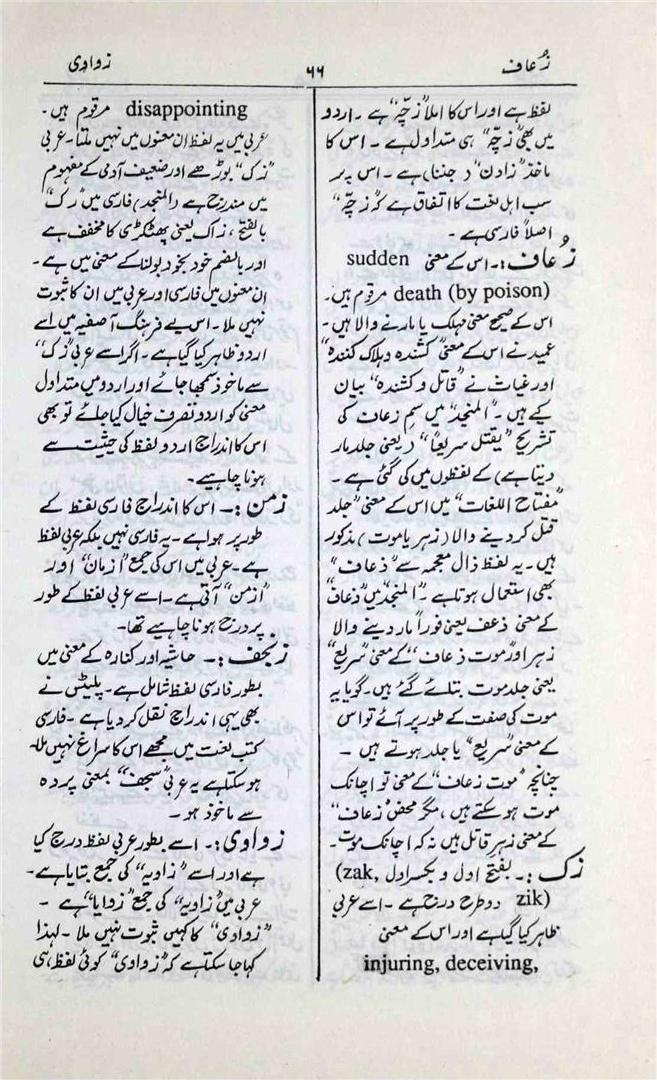 زُعاف ۶۶ زوادی
لفظ ہے اور اس کا املا ”زچّہ“ ہے ۔ اردو
میں بھی ”زچّہ“ ہی متداول ہے ۔ اس کا
ماخذ ”زادن“ (جننا) ہے ۔ اس پر
سب اہل لغت کا اتفاق ہے کہ ”زچّہ“
اصلاً فارسی ہے ۔
زُعاف :۔ اس کے معنی sudden
death (by poison) مرقوم ہیں۔
اس کے صحیح معنی مہلک یا مارنے والا ہیں۔
عمید نے اس کے معنی ”کشندہ و ہلاک کنندہ“
اور غیاث نے ”قاتل و کشندہ“ بیان
کیے ہیں ۔ ”المنجد“ میں سم زعاف کی
تشریح ”یقتل سریعاً“ (یعنی جلد مار
دیتا ہے) کے لفظوں میں کی گئی ہے ۔
”مفتاح اللغات“ میں اس کے معنی ”جلد
قتل کر دینے والا (زہر یا موت) مذکور
ہیں ۔ یہ لفظ ذال معجمہ سے ”ذعاف“
بھی استعمال ہوتا ہے ۔ ”المنجد“ میں ”ذعاف“
کے معنی ذعف یعنی فوراً مار دینے والا
زہر اور ”موت ذعاف“ کے معنی ”سریع“
یعنی جلد موت بتلائے گئے ہیں۔ گویا یہ
موت کی صفت کے طور پر آئے تو اس
کے معنی ”سریع“ یا جلد ہوتے ہیں ۔
چنانچہ ”موت زعاف“ کے معنی تو اچانک
موت ہو سکتے ہیں، مگر محض ”زعاف“
کے معنی زہر قاتل ہیں نہ کہ اچانک موت۔
زک :۔ بفتح اول و بکسر اول (zak,
zik) دو طرح درج ہے ۔ اسے عربی
ظاہر کیا گیا ہے اور اس کے معنی
injuring, deceiving,
disappointing مرقوم ہیں ۔
عربی میں یہ لفظ ان معنوں میں نہیں ملتا ۔ عربی
”زک“ بوڑھے اور ضعیف آدمی کے مفہوم
میں مندرج ہے (المنجد) فارسی میں ”زک“
بالفتح، زاک یعنی پھٹکڑی کا مخفف ہے
اور بالضم خود بخود بولنا کے معنی میں ہے ۔
ان معنوں میں فارسی اور عربی میں ان کا ثبوت
نہیں ملا ۔ اس لیے فرہنگ آصفیہ میں اسے
اردو ظاہر کیا گیا ہے ۔ اگر اسے عربی ”زک“
سے ماخوذ سمجھا جائے اور اردو میں متداول
معنی کو اردو تصرف خیال کیا جائے تو بھی
اس کا اندراج اردو لفظ کی حیثیت سے
ہونا چاہیے ۔
زمن :۔ اس کا اندراج فارسی لفظ کے
طور پر ہوا ہے ۔ یہ فارسی نہیں بلکہ عربی لفظ
ہے ۔ عربی میں اس کی جمع ”ازمان“ اور
”ازمن“ آتی ہے ۔ اسے عربی لفظ کے طور
پر درج ہونا چاہیے تھا ۔
زنجف :۔ حاشیہ اور کنارہ کے معنی میں
بطور فارسی لفظ شامل ہے ۔ پلیٹس نے
بھی یہی اندراج نقل کر دیا ہے ۔ فارسی
کتب لغت میں مجھے اس کا سراغ نہیں ملا۔
ہو سکتا ہے یہ عربی ”سجف“ بمعنی پردہ
سے ماخوذ ہو ۔
زوادی :۔ اسے بطور عربی لفظ درج کیا
ہے اور اسے ”زاویہ“ کی جمع بتایا ہے ۔
عربی میں ”زاویہ“ کی جمع ”زوایا“ ہے ۔
”زوادی“ کا کہیں ثبوت نہیں ملا ۔ لہٰذا
کہا جا سکتا ہے کہ ”زوادی“ کوئی لفظ ہی